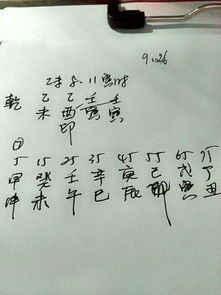 9.26
乾 乙 乙 壬 壬
未 酉 寅 寅
印
5 15 25 35 45 55 65 75
甲 癸 壬 辛 庚 己 戊 丁
申 未 午 巳 辰 卯 寅 丑